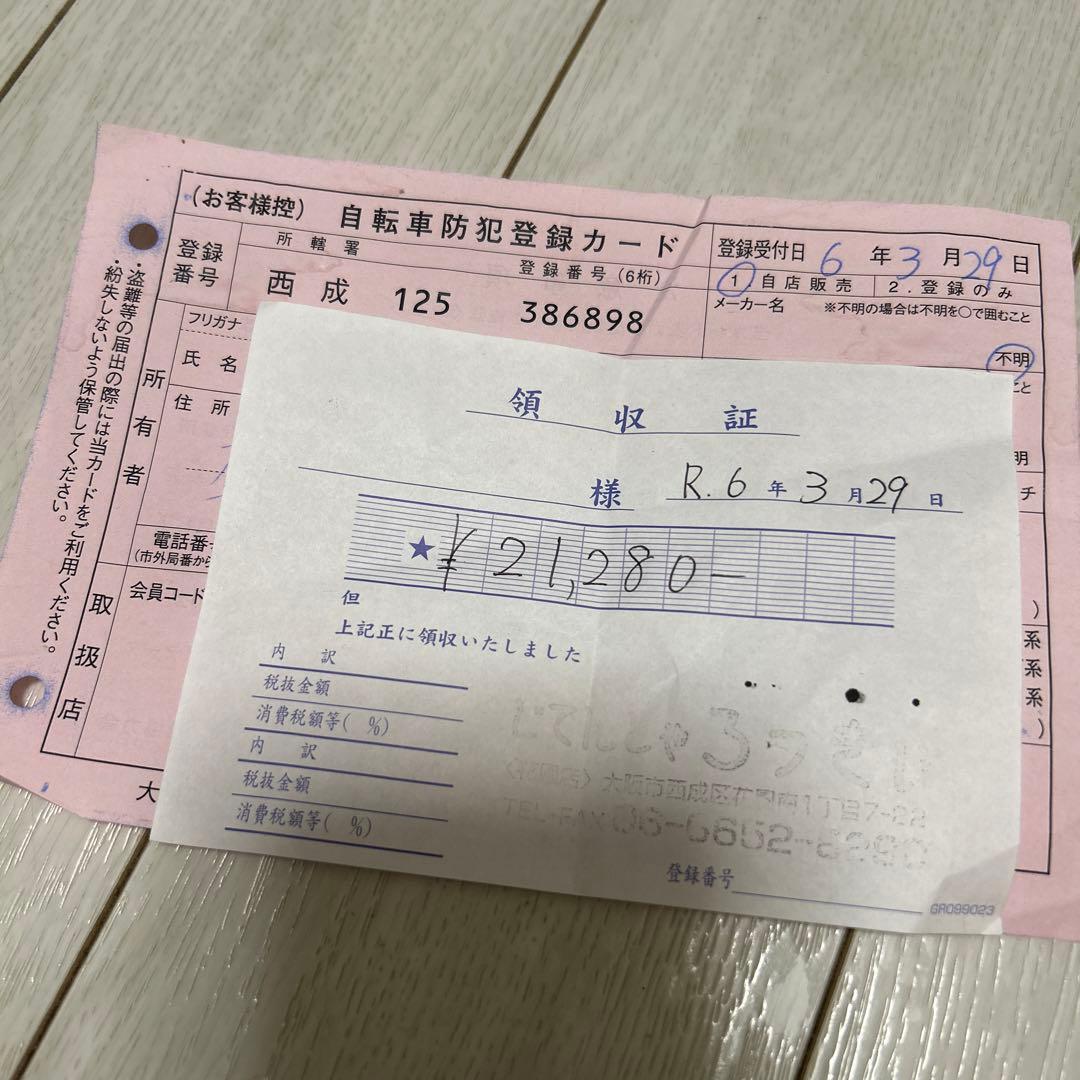 (お客様控) 自転車防犯登録カード
登録受付日 6 年 3 月 29 日
1 自店販売 2.登録のみ
登録番号
所轄署 登録番号(6桁)
西成 125 386898
メーカー名 ※不明の場合は不明を○で囲むこと
不明
こと
フリガナ
氏名
住所
所有者
明
チ
電話番
(市外局番か
会員コード
取扱店
)
系
系
系
)
大
・盗難等の届出の際には当カードをご利用ください。
・紛失しないよう保管してください。
領収証
様 R.6年3月29日
★ ¥21,280-
但
上記正に領収いたしました
内訳
税抜金額
消費税額等( %)
内訳
税抜金額
消費税額等( %)
大阪市西成区
TEL
登録番号
GR099023